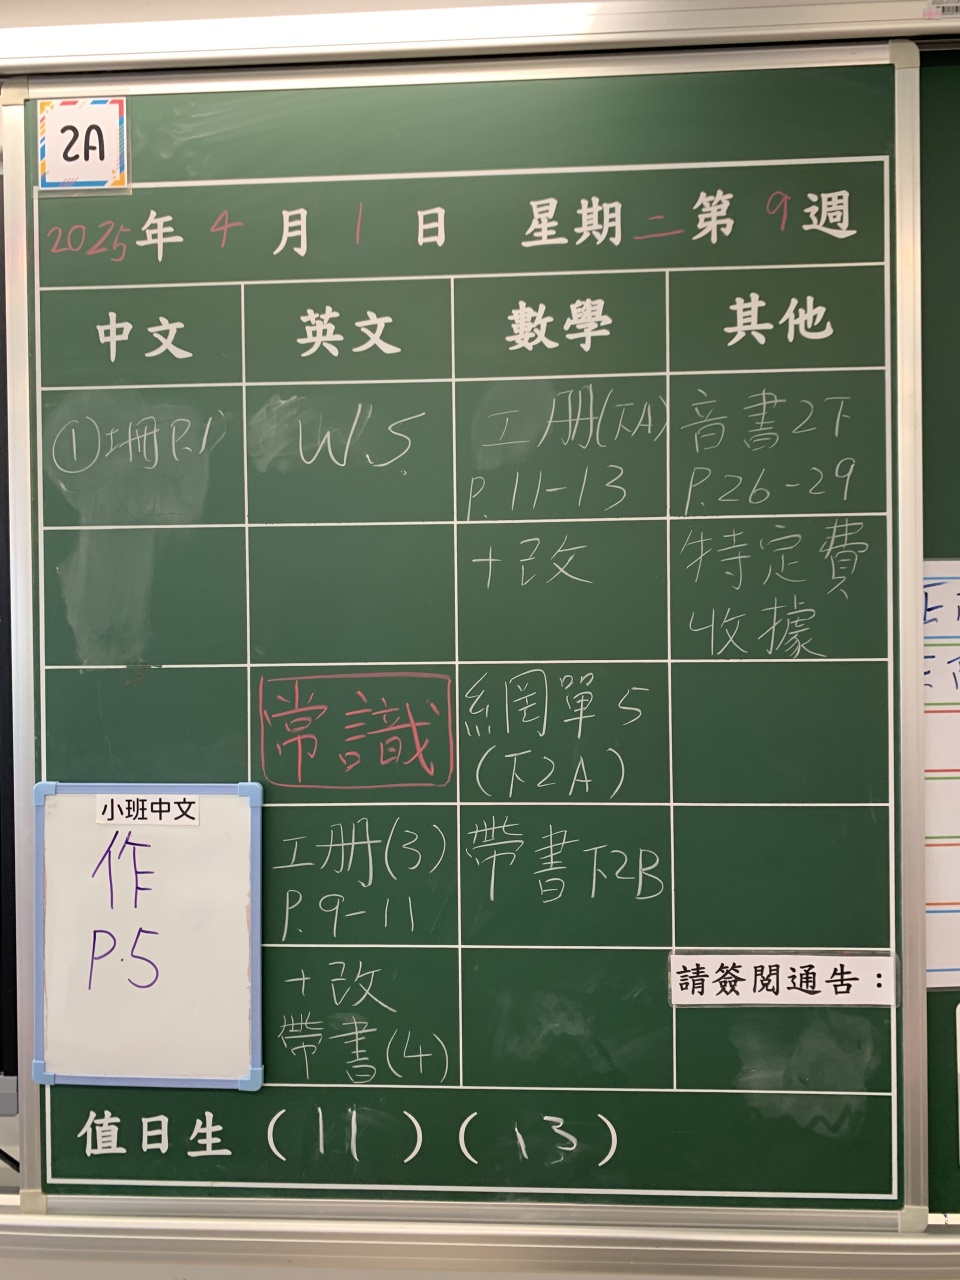 2A
2025年 4月 1日 星期二 第9週
中文 英文 數學 其他
①工冊P.1
WS
工冊(下A)
P.11-13
音書2下
P.26-29
+改
特定費
收據
常識
網單5
(下2A)
小班中文
作
P.5
工冊(3)
P.9-11
帶書下2B
+改
帶書(4)
請簽閱通告：
值日生 (11) (13)